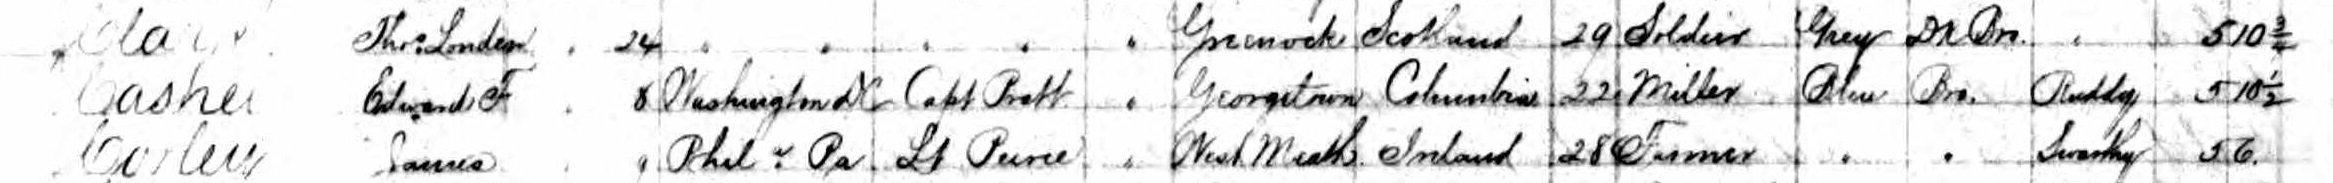 Clark Thos. London " 24 " " " " " Greenock Scotland 29 Soldier Grey Dk Bro. " 5 10 3/4
Cashel Edward F " 8 Washington DC Capt Pratt " Georgetown Columbia 22 Miller Blue Bro. Ruddy 5 10 1/2
Corley James " 9 Phil a Pa Lt Peirce " West Meath Ireland 28 Farmer " " Swarthy 5 6.